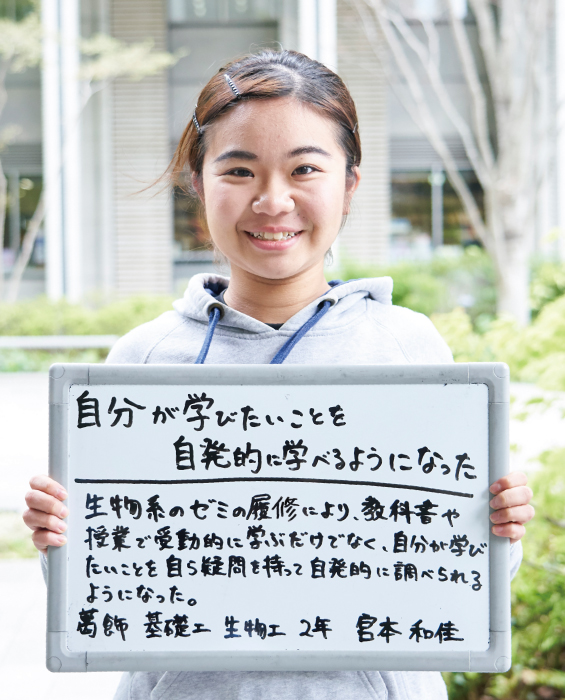 自分が学びたいことを
自発的に学べるようになった
生物系のゼミの履修により、教科書や
授業で受動的に学ぶだけでなく、自分が学び
たいことを自ら疑問を持って自発的に調べられる
ようになった。
葛飾 基礎工 生物工 2年 宮本 和佳